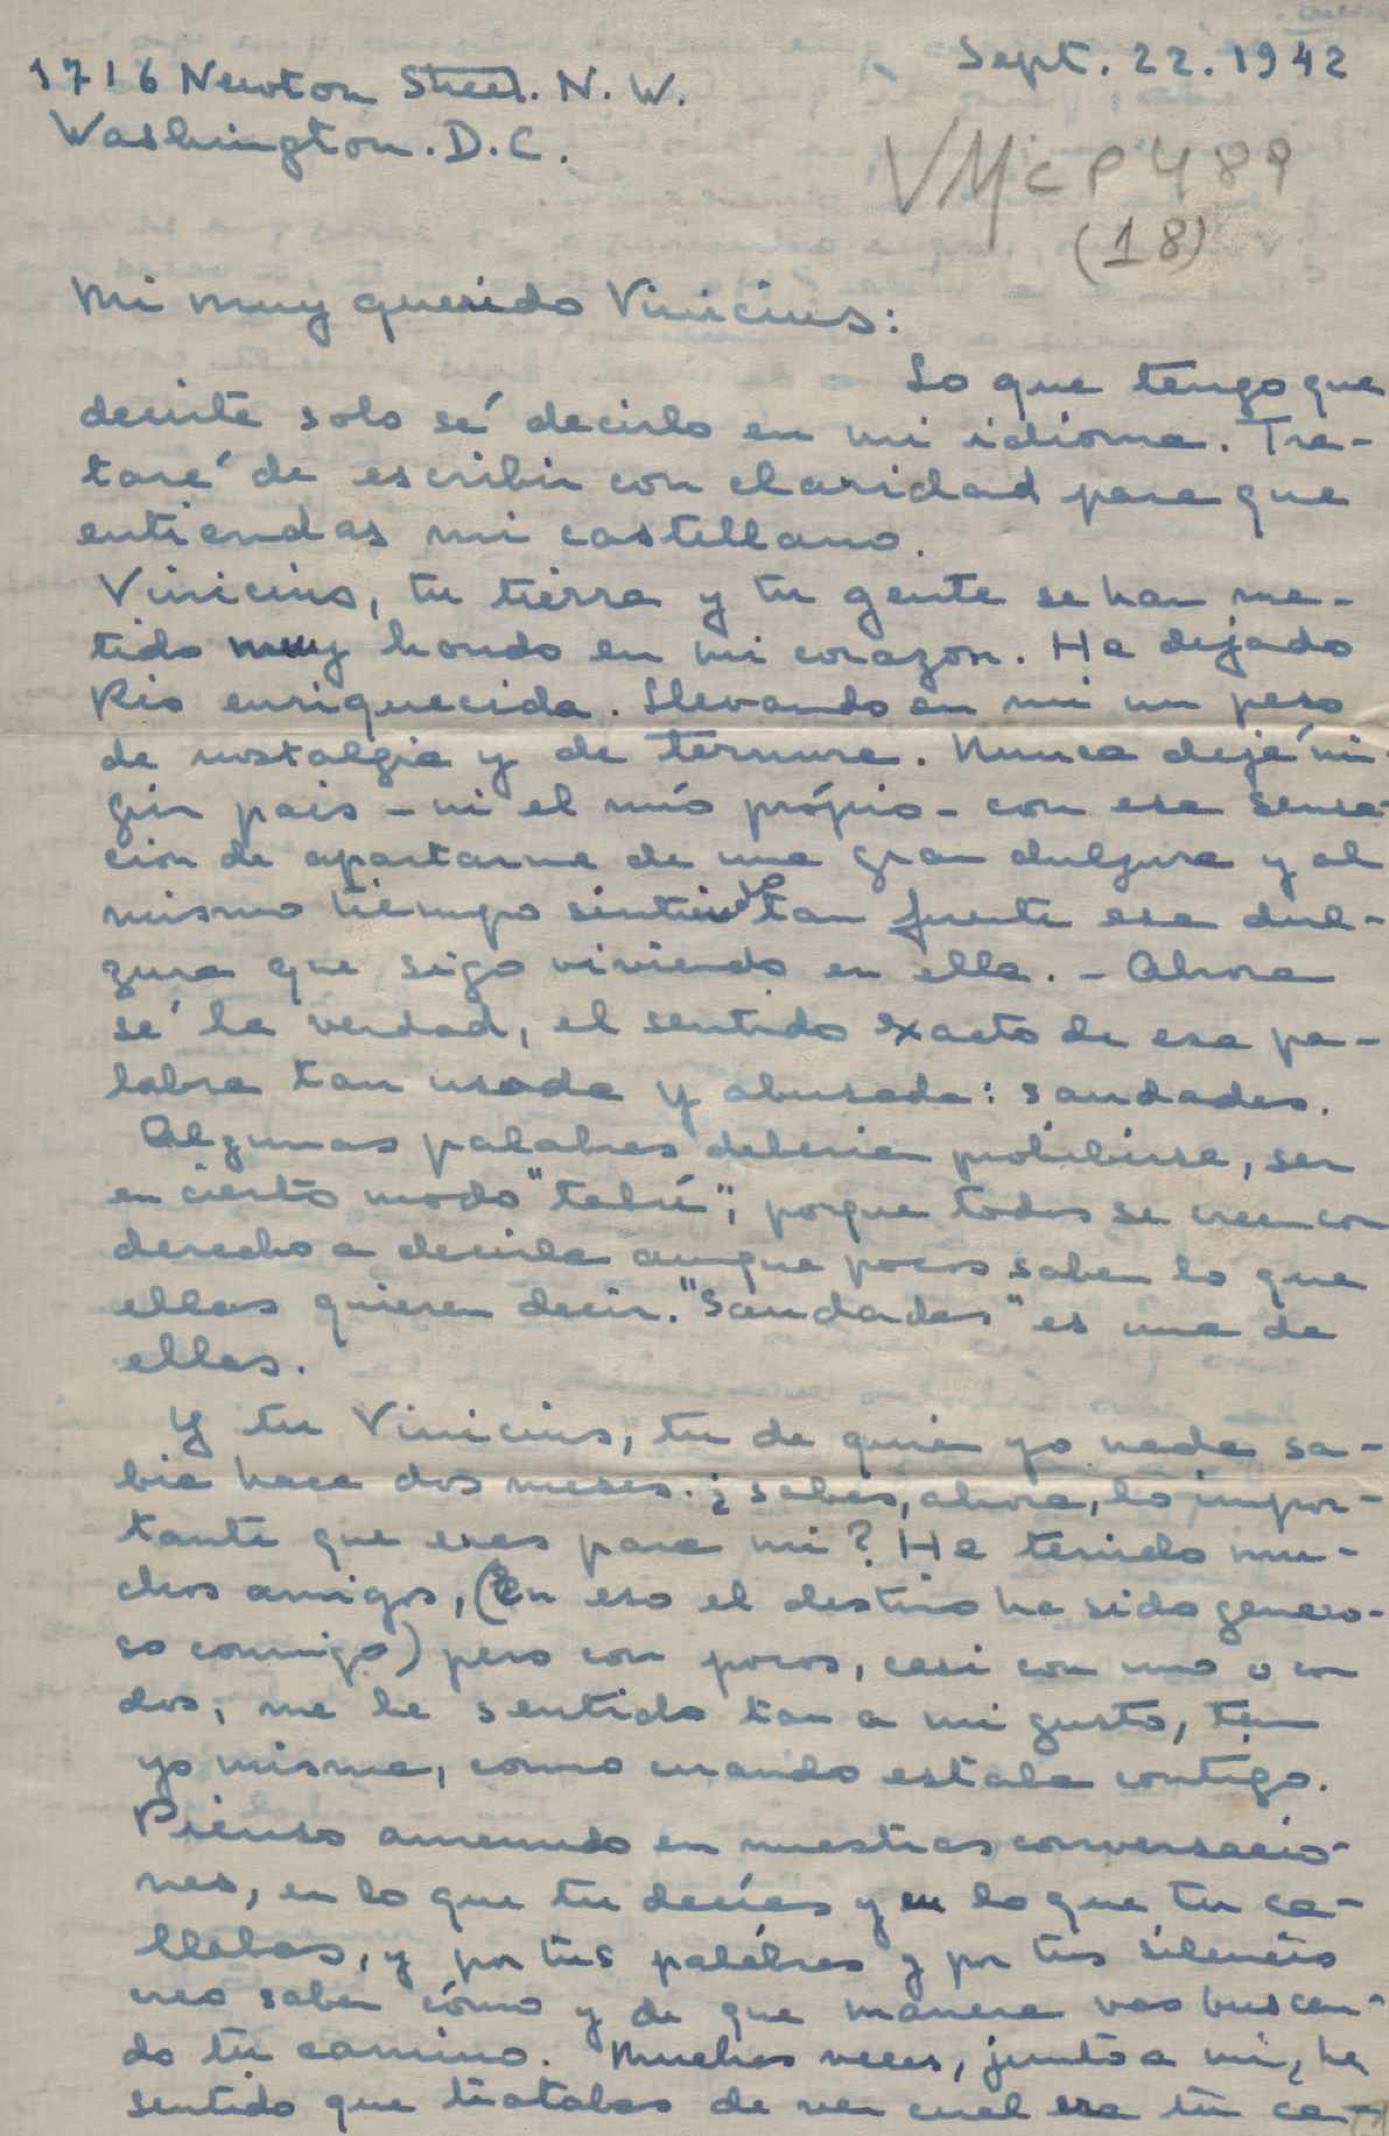 Sept. 22. 1942
1716 Newton Street. N. W.
Washington. D. C.
VMcp489
(18)
Mi muy querido Vinicius:
Lo que tengo que
decirte solo sé decirlo en mi idioma. Tra-
taré de escribir con claridad para que
entiendas mi castellano.
Vinicius, tu tierra y tu gente se han me-
tido muy hondo en mi corazon. He dejado
Rio enriquecida. Llevando en mi un peso
de nostalgia y de ternura. Nunca dejé nin-
gún pais - ni el mío própio - con esa sensa-
cion de apartarme de una gran dulzura y al
mismo tiempo sintiendo tan fuerte esa dul-
zura que sigo viviendo en ella. - Ahora
sé la verdad, el sentido exacto de esa pa-
labra tan usada y abusada: saudades.
Algunas palabras deberian prohibirse, ser
en cierto modo "tabú", porque todos se creen con
derecho a decirla aunque pocos saben lo que
ellas quieren decir. "Saudades" es una de
ellas.
Y tu Vinicius, tu de quien yo nada sa-
bia hace dos meses. ¿sabes, ahora, lo impor-
tante que eres para mi? He tenido mu-
chos amigos, (En eso el destino ha sido genero-
so conmigo) pero con pocos, casi con uno o con
dos, me he sentido tan a mi gusto, tan
yo misma, como cuando estaba contigo.
Pienso amenudo en nuestras conversacio-
nes, en lo que tu decías y en lo que tu ca-
llabas, y por tus palábras y por tus silencios
creo saber cómo y de que manera vas buscan-
do tu camino. Muchas veces, junto a mi, he
sentido que tratabas de ver cual era tu ca-